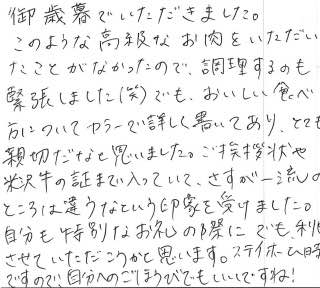 御歳暮でいただきました。
このような高級なお肉をいただい
たことがなかったので、調理するのも
緊張しました(笑)でも、おいしい食べ
方についてカラーで詳しく書いてあり、とても
親切だなと思いました。ご挨拶状や
米沢牛の証まで入っていて、さすが一流の
ところは違うなという印象を受けました。
自分も特別なお礼の際にでも、利
させていただこうかと思います。ステイホーム時
ですので、自分へのごほうびでもいいですね!